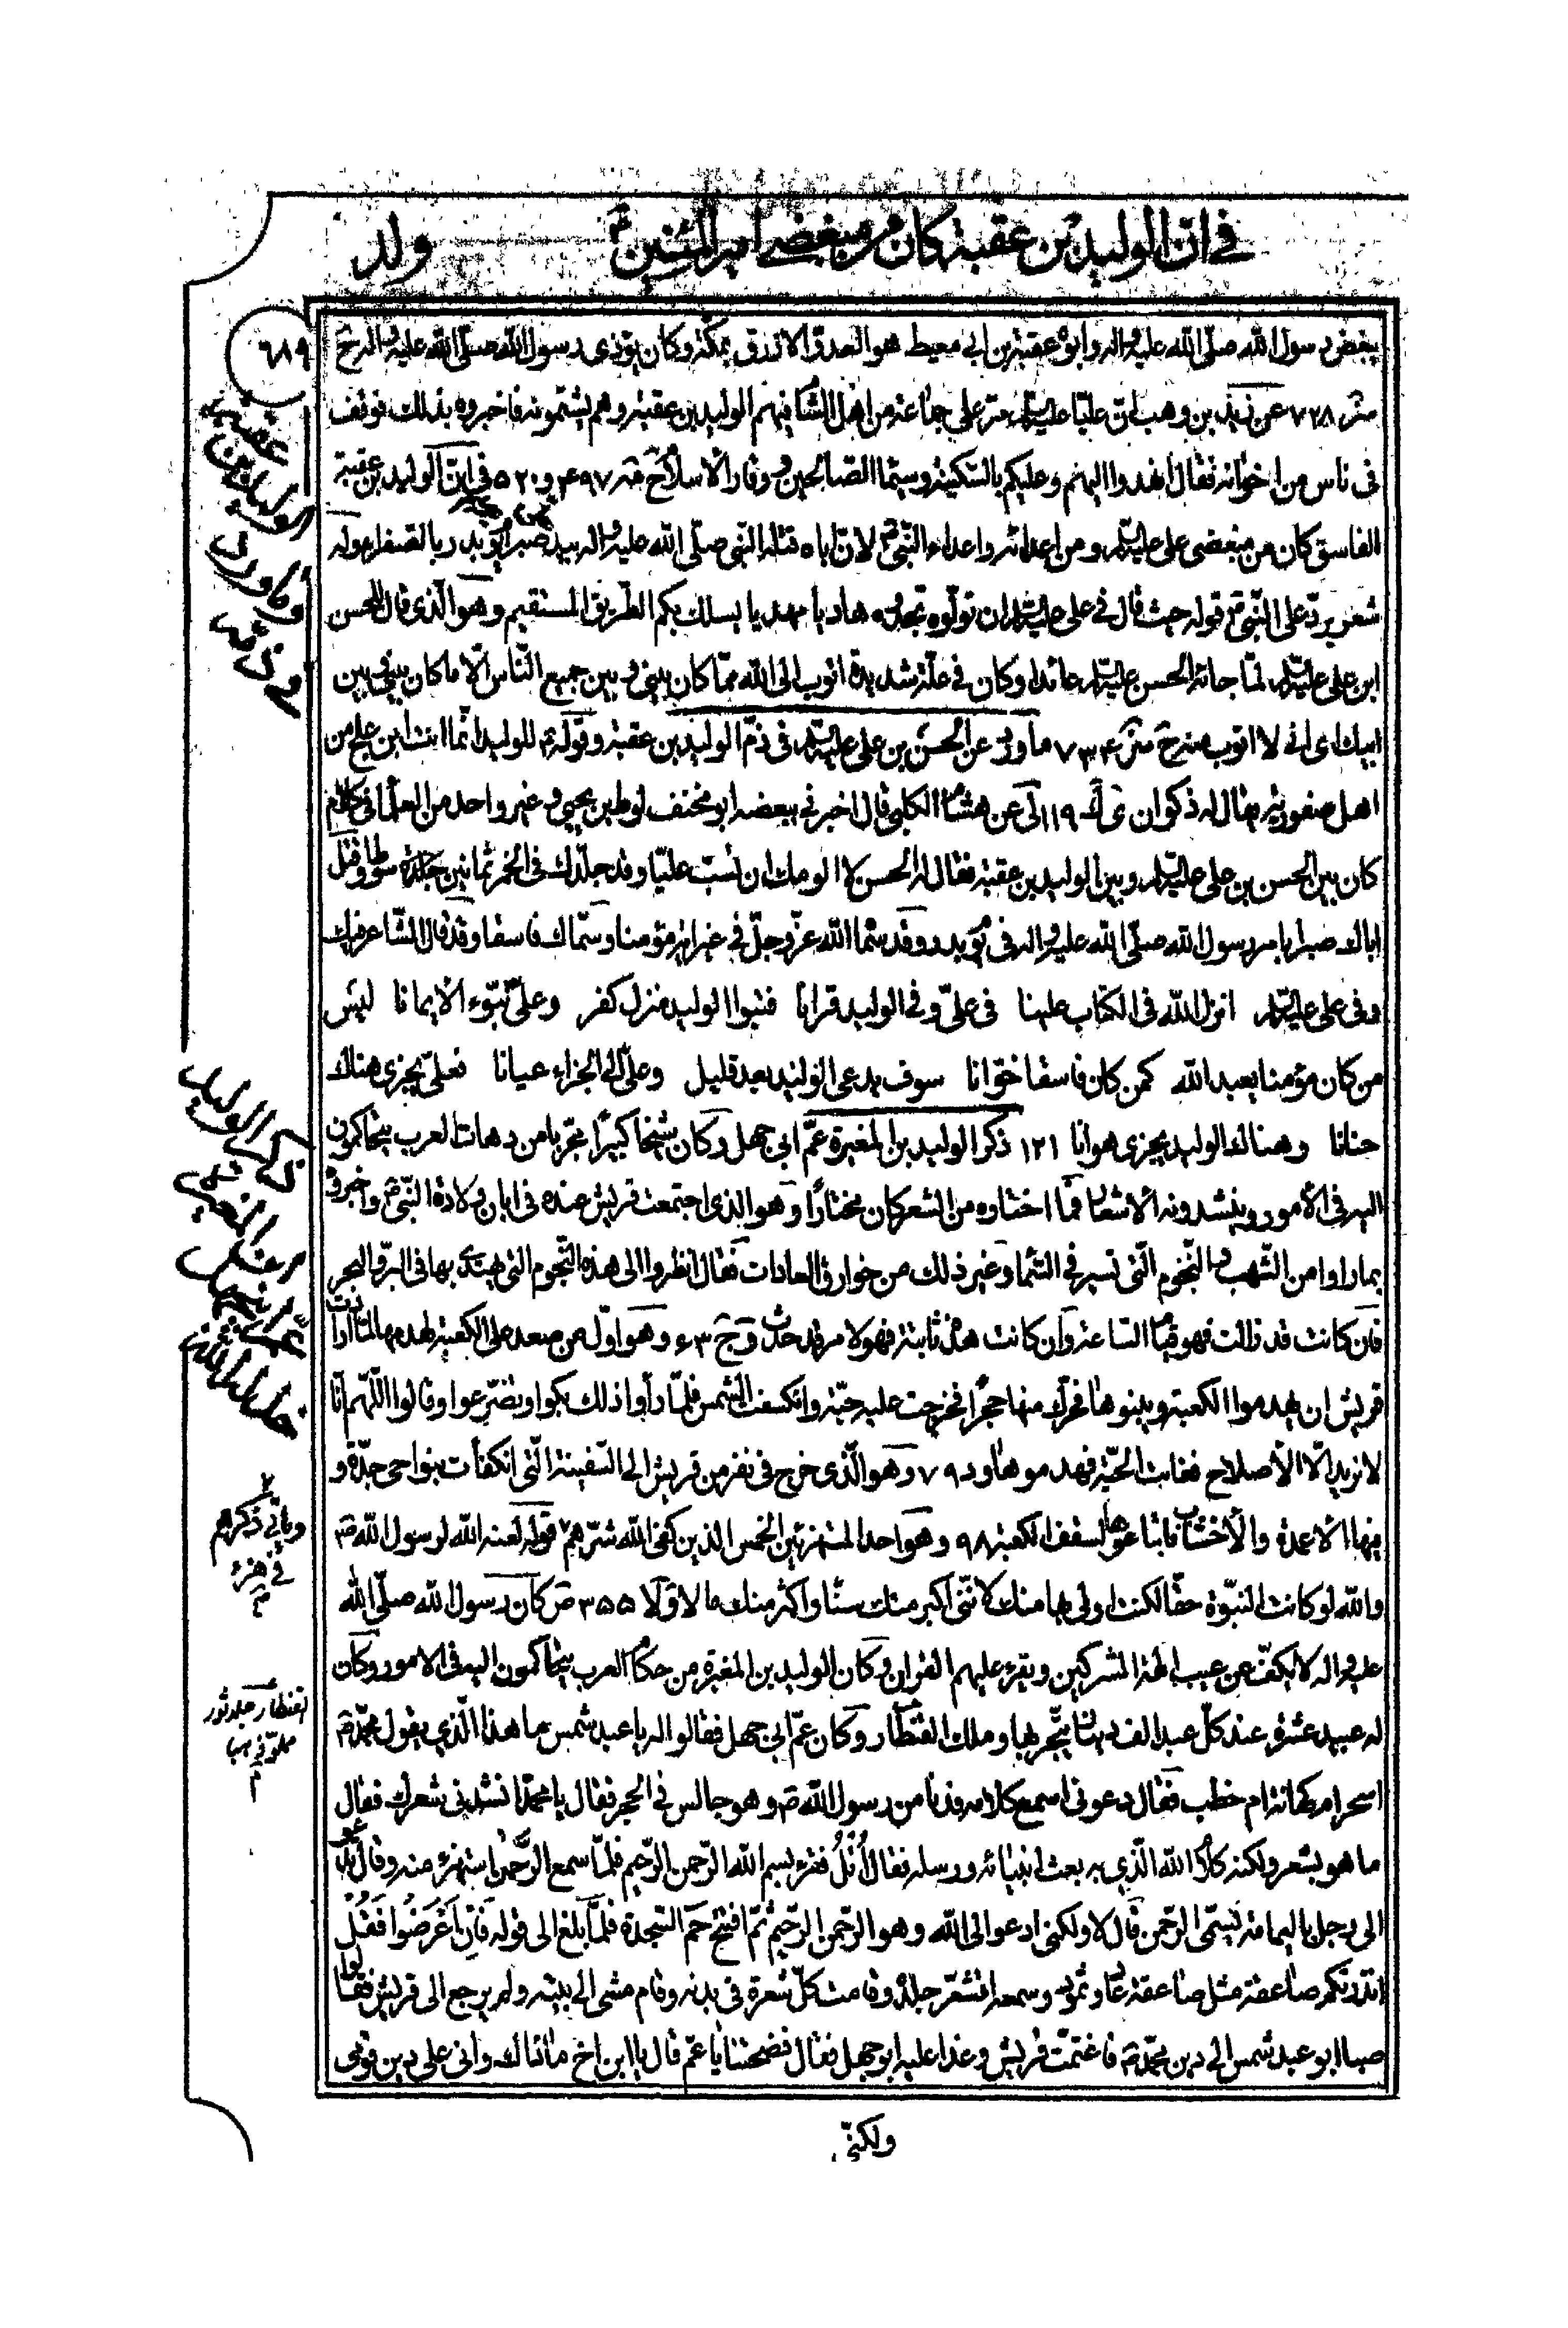 في ان الوليد بن عقبة كان من مبغضي امير المؤمنين ع ولد
٦٨٩
يبغض رسول الله صلى الله عليه واله وابوه عقبة بن ابي معيط هو العدو الازرق بمكة وكان يؤذي رسول الله صلى الله عليه واله ح
٧٢٨ عن زيد بن وهب ان عليا عليه السلام مر على جماعة من اهل الشام فيهم الوليد بن عقبة وهم يشتمونه فاخبروه بذلك فوقف
في ناس من اخوانه فقال انهدوا اليهم وعليكم بالسكينة وسيما الصالحين ووقار الاسلام ح ٤٩٧ و ٥٢٠ في ان الوليد بن عقبة
الفاسق كان من مبغضي علي عليه السلام ومن اعدائه واعداء النبي ص لان اباه قتله النبي صلى الله عليه واله بيد علي صبرا يوم بدر بالصفراء وله
شعر يرد على النبي ص قوله حيث قال في علي عليه السلام ان تولوه تجدوه هاديا مهديا يسلك بكم الطريق المستقيم وهو الذي قال للحسن
ابن علي عليه السلام لما جائه الحسن عليه السلام عائدا وكان في علة شديدة اتوب الى الله مما كان بيني وبين جميع الناس الا ما كان بيني وبين
ابيك اي اني لا اتوب منه ح ٧٣٤ ما روي عن الحسن بن علي عليه السلام في ذم الوليد بن عقبة وقوله ع للوليد انما انت ابن علج من
اهل صفورية يقال له ذكوان ١١٩ عن هشام الكلبي قال اخبرني ببعضه ابو مخنف لوط بن يحيى وغير واحد من العلماء في كلام
كان بين الحسن بن علي عليه السلام وبين الوليد بن عقبة فقال له الحسن لا الومك ان تسب عليا وقد جلدك في الخمر ثمانين جلدة سوطا وقتل
اباك صبرا بامر رسول الله صلى الله عليه واله في يوم بدر وقد سماه الله عز وجل في غير اية مؤمنا وسماك فاسقا وقد قال الشاعر فيك
وفي علي عليه السلام انزل الله في الكتاب علينا في علي وفي الوليد قرانا فتبوا الوليد منزل كفر وعلي تبوء الايمانا ليس
من كان مؤمنا يعبد الله كمن كان فاسقا خوانا سوف يدعى الوليد بعد قليل وعلي الى الجزاء عيانا فعلي يجزى هناك
جنانا وهناك الوليد يجزى هوانا ١٢١ ذكر الوليد بن المغيرة عم ابي جهل وكان شيخا كبيرا مجربا من دهات العرب يتحاكمون
اليه في الامور وينشدونه الاشعار فما اختاره من الشعر كان مختارا وهو الذي اجتمعت قريش عنده في ابان ولادة النبي ص واخبروه
بما راوا من الشهب والنجوم التي تسير في السماء وغير ذلك من خوارق العادات فقال انظروا الى هذه النجوم التي يهتدى بها في البر والبحر
فان كانت قد زالت فهو قيام الساعة وان كانت هذه ثابتة فهو لامر قد حدث وج ٣ وهو اول من صعد على الكعبة لهدمها لما ارادت
قريش ان يهدموا الكعبة ويبنوها فحرك منها حجرا فخرجت عليه حية وانكسفت الشمس فلما رأوا ذلك بكوا وتضرعوا وقالوا اللهم انا
لا نريد الا الاصلاح فغابت الحية فهدموها ود ٧٩ وهو الذي خرج في نفر من قريش الى السفينة التي انكفأت بنواحي جدة و
فيها الاعمدة والاخشاب فابتاعوها لسقف الكعبة ٩٨ وهو احد المستهزئين الخمس الذين كفى الله شرهم قوله لعنه الله لرسول الله ص
والله لو كانت النبوة حقا لكنت اولى بها منك لانني اكبر منك سنا واكثر منك مالا وولدا ٣٥٥ ص كان رسول الله صلى الله
عليه واله لا يكف عن عيب الهة المشركين ويقرء عليهم القران وكان الوليد بن المغيرة من حكام العرب يتحاكمون اليه في الامور وكان
له عبيد عشرة عند كل عبد الف دينار يتجر بها وملك القنطار وكان عم ابي جهل فقالوا له يا عبد شمس ما هذا الذي يقول محمد ص
اسحر ام كهانة ام خطب فقال دعوني اسمع كلامه فدنا من رسول الله ص وهو جالس في الحجر فقال يا محمد انشدني شعرك فقال
ما هو بشعر ولكنه كلام الله الذي به بعث انبيائه ورسله فقال اُتلُ فقرء بسم الله الرحمن الرحيم فلما سمع الرحمن استهزء منه وقال تدعو
الى رجل باليمامة يسمى الرحمن قال لا ولكني ادعو الى الله وهو الرحمن الرحيم ثم افتتح حم السجدة فلما بلغ الى قوله فَاِن اَعرَضُوا فَقُل
انذرتكم صاعقة مثل صاعقة عاد وثمود وسمعه اقشعر جلده وقامت كل شعرة في بدنه وقام مشى الى بيته ولم يرجع الى قريش فقالوا
صبا ابو عبد شمس الى دين محمد ص فاغتمت قريش وغدا عليه ابو جهل فقال فضحتنا يا عم قال يا ابن اخ ما ذاك واني على دين قومي
ولكني
الوليد بن عقبة
وما ورد في ذمه
ذكر الوليد بن المغيرة
وياتي ذكرهم
في هزء
م
القنطار جلد ثور
مملو ذهب
م